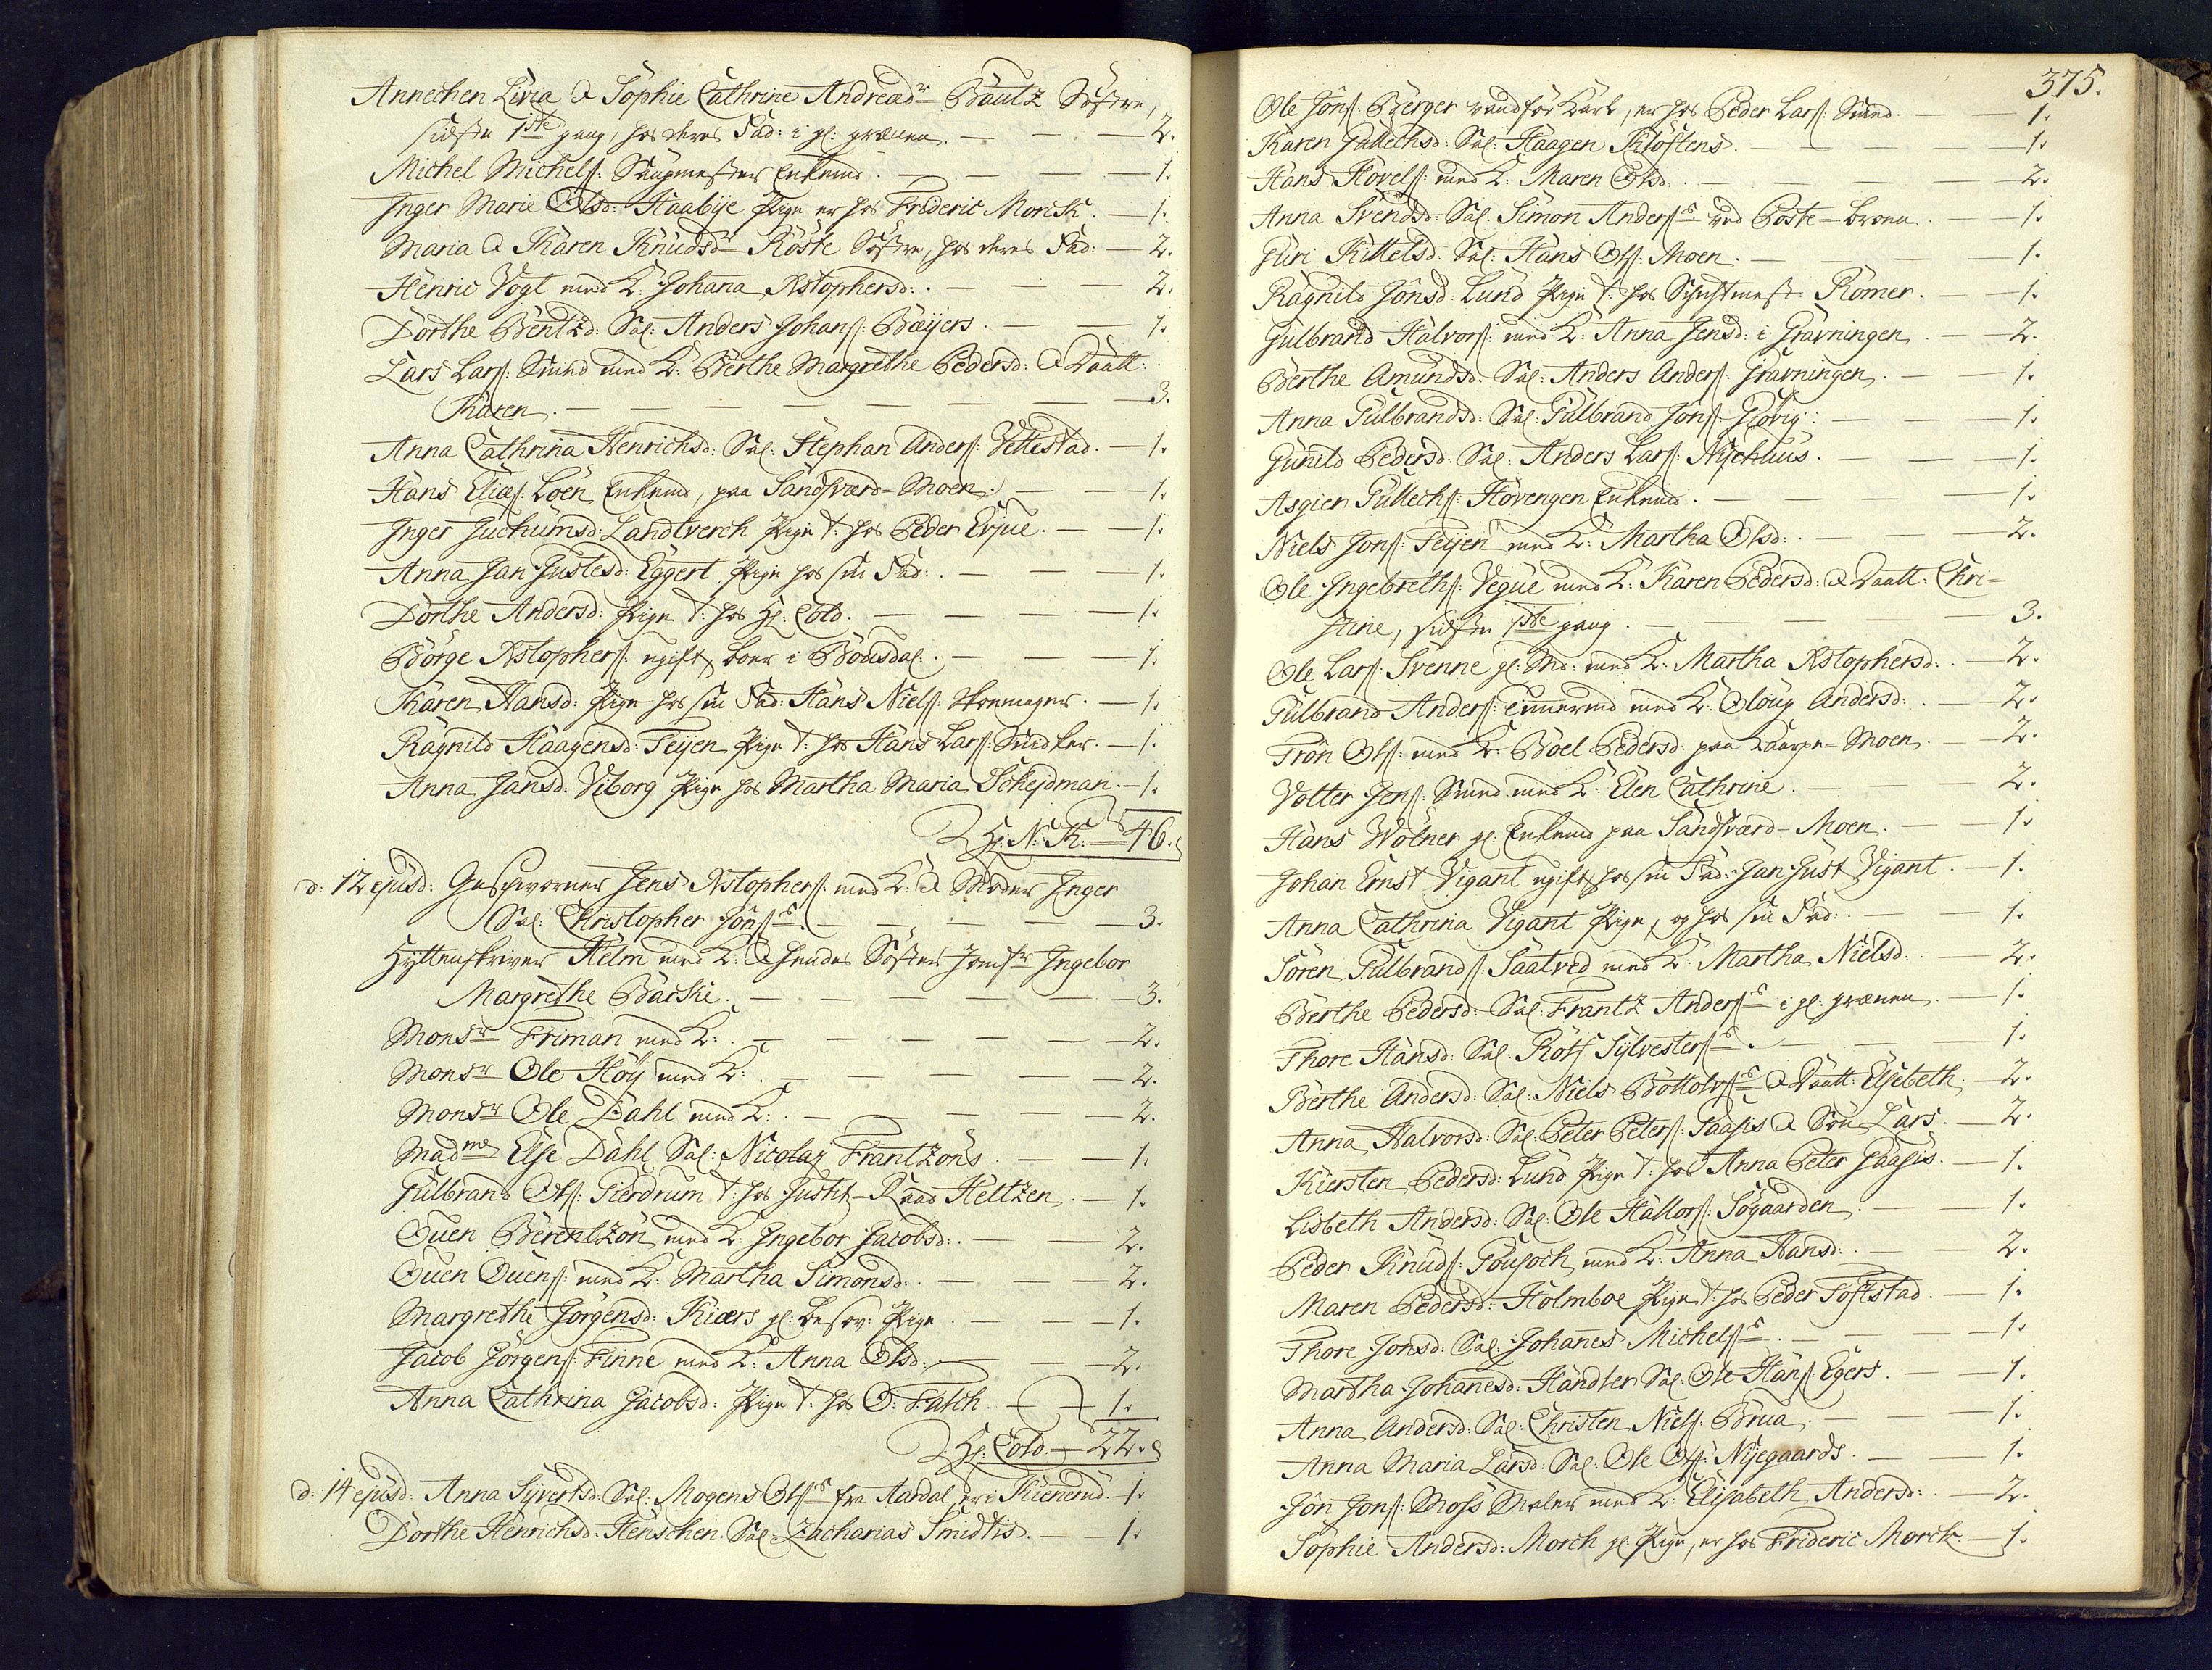 Annechen Livia & Sophie Cathrine Andreædr Bautz Søstre,
sidste 1ste gang, hos deres Fad: i gl: grænen. — — — 2.
Michel Michels: Enkemd. — — — 1.
Inger Marie Olsd: Haabije Pige er hos Frideric Morch. — 1.
Maria & Karen Knudsdr Röste Søstre, hos deres Fad: — 2.
Henric Vogt med K: Johana Xstophersd: — — — 2.
Dorthe Bentzd: Sal: Anders Johans: Bæijers. — — 1.
Lars Lars: Smed med K: Berthe Margrethe Pedersd: & Daatt:
Karen. — — — — — — — 3.
Anna Cathrina Henrichsd: Sal: Stephan Anders: Vettestad. — 1.
Hans Elias: Loen Enkemd, paa Sandsværd-Moen. — — 1.
Inger Juchumsd: Landtverch Pige t: hos Peder Evjue. — 1.
Anna Jan Justesd: Eggert Pige hos sin Fad: — — — 1.
Dorthe Andersd: Pige t: hos Hr: Cold. — — — — 1.
Börge Xstophers: ugift, boer i Böusdal. — — — 1.
Karen Hansd: Pige hos sin Fad: Hans Niels: Skoemager. — 1.
Ragnild Haagensd: Teijen Pige t: hos Hans Lars: Snidker. — 1.
Anna Jansd: Viborg Pige hos Martha Maria Schejdman. — 1.
Hr: N: K: — 46.
d: 12 ejusd: Geschworner Jens Xstophers: med K: & Moder Inger
Sal: Christopher Jöns:s. — — — — 3.
Hyttenskriver Helm med K: & hendes Søster Jomfr Ingebor
Margrethe Barski. — — — — — 3.
Monsr Friman med K: — — — — — 2.
Monsr Ole Höij med K: — — — — 2.
Monsr Ole Dahl med K: — — — — 2.
Madme Else Dahl Sal: Nicolaj Frantzöns — — 1.
Gulbrand Ols: Gierdrum t: hos Justitz-Raad Heltzen. — 1.
Ouen Berentzön med K: Ingebor Jacobsd: — — 2.
Ouen Ouens: med K: Martha Simonsd: — — — 2.
Margrethe Jörgensd: Kiærs gl: besov: Pige — — — 1.
Jacob Jörgens: Finne med K: Anna Olsd: — — 2.
Anna Cathrina Jacobsd: Pige t: hos O: Falch. — — 1.
Hr: Cold. — 22.
d: 14 ejusd: Anna Sijvertsd: Sal: Mogens Ols:s fra Aardal, er i Kienerud. — 1.
Dorthe Henrichsd: Henschen Sal: Zacharias Smidtis. — — 1.
375.
Ole Jöns: Berger vandför Karl, er hos Peder Lars: Smed. — — 1.
Karen Gullechsd: Sal: Haagen Klöftens. — — — 1.
Hans Hovels: med K: Maren Olsd: — — — 2.
Anna Svendsd: Sal: Simon Anders:s ved Poste-broen. — 1.
Guri Kittelsd: Sal: Hans Ols: Moen. — — — 1.
Ragnild Jönsd: Lund Pige t: hos Schichtmest: Römer. — 1.
Gulbrand Halvors: med K: Anna Jensd: i Gravningen. — 2.
Berthe Amundsd: Sal: Anders Anders: Gravningen. — 1.
Anna Gulbrandsd: Sal: Gulbrand Jöns: Giövig: — — 1.
Gunild Pedersd: Sal: Anders Lars: Nijehuus. — — 1.
Asgier Gullechs: Hövengen Enkemd. — — — 1.
Niels Jons: Teijen med K: Martha Olsd: — — — 2.
Ole Ingebreths: Vegue med K: Karen Pedersd: & Daatt: Chri-
stine, sidste 1ste gang. — — — — 3.
Ole Lars: Svenne gl: Md: med K: Martha Xstophersd: — 2.
Gulbrand Anders: med K: Oloug Andersd: — 2.
Trön Ols: med K: Boel Pedersd: paa Kaarpe-Moen. — 2.
Volter Jens: Smed med K: Elen Cathrine. — — — 2.
Hans Wölner gl: Enkemd paa Sandsværd-Moen. — 1.
Johan Ernst Vigant ugift, hos sin Fad: Jan Just Vigant. — 1.
Anna Cathrina Vigant Pige, og hos sin Fad: — — 1.
Sören Gulbrands: Saatved med K: Martha Nielsd: — 2.
Berthe Pedersd: Sal: Frantz Anders:s i gl: grænen. — 1.
Thore Hansd: Sal: Rolf Sylvesters:s. — — 1.
Berthe Andersd: Sal: Niels Böttolvs:s & Daatt: Elsebeth. — 2.
Anna Halvorsd: Sal: Peter Peters: Saasis & Sön Lars. — 2.
Kiersten Pedersd: Lund Pige t: hos Anna Peter Saasis. — 1.
Lisbeth Andersd: Sal: Ole Hallors: Sögaarden. — — 1.
Peder Knuds: Fousoch med K: Anna Hansd: — — 2.
Maren Pedersd: Holmboe Pige t: hos Peder Toftstad. — 1.
Thore Jonsd: Sal: Johanes Michels:s. — — — 1.
Martha Johanesd: Handler Sal: Ole Hans: Egers. — 1.
Anna Andersd: Sal: Christen Niels: Brua. — — 1.
Anna Maria Larsd: Sal: Ole Ols: Nijegaards. — — 1.
Jön Jons: Moss Maler med K: Elisabeth Andersd: — 2.
Sophie Andersd: Morch gl: Pige, er hos Frideric Morch. — 1.